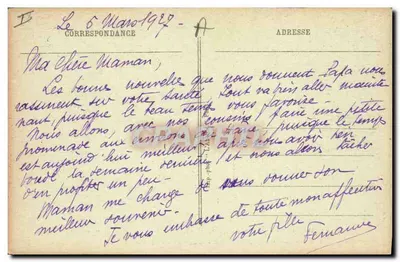 II
Le 5 Mars 1927 -
A
CORRESPONDANCE
ADRESSE
Ma chère Maman,
Les bonnes nouvelles que nous donnent Papa nous
rassurent sur votre santé, tout va bien aller mainte
nant, puisque le beau temps vous favorise -
Nous allons, avec nos cousins, faire une petite
promenade aux environs de, puisque le temps
est aujourd'hui meilleur, après nous avoir bien
boudé la semaine dernière, et nous allons tâcher
d'en profiter un peu -
Maman me charge de vous donner son
meilleur souvenir -
Je vous embrasse de toute mon affection
votre fille
Fernande